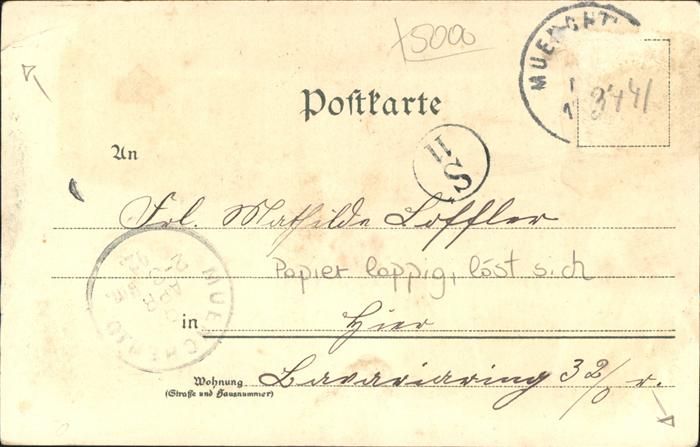 x5000
MUENCHE
3441
Postkarte
An
S11
Frl. Mathilde Löffler
Papier lappig, löst sich
MUENCHEN
APR.
in Hier
Wohnung Bavariaring 32/0 r.
(Straße und Hausnummer)